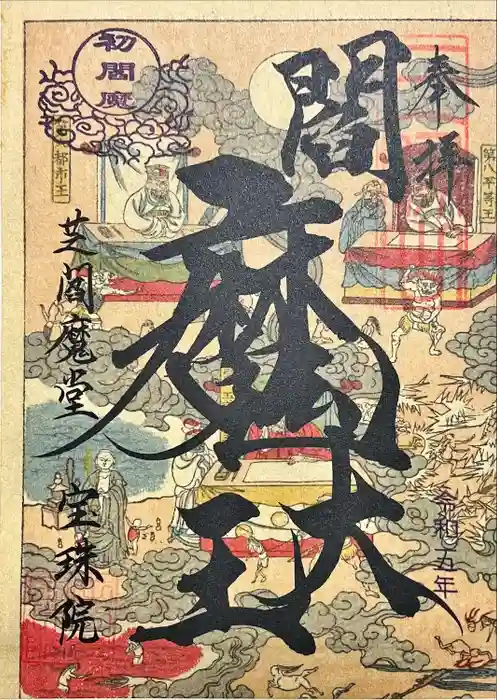 奉拝
第八平等王
閻魔大王
初閻魔
都市王
令和五年
芝閻魔堂
宝珠院